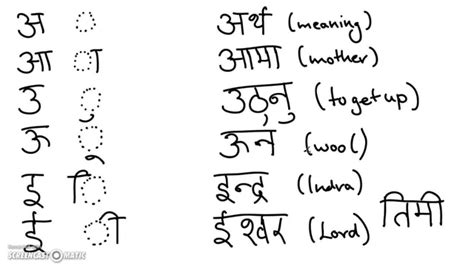 अ ◌ अर्थ (meaning)
आ ◌ा आमा (mother)
उ ◌ु उठ्नु (to get up)
ऊ ◌ू ऊन (wool)
इ ि◌ इन्द्र (Indra)
ई ◌ी ईश्वर (Lord) तिमी
SCREENCAST-O-MATIC